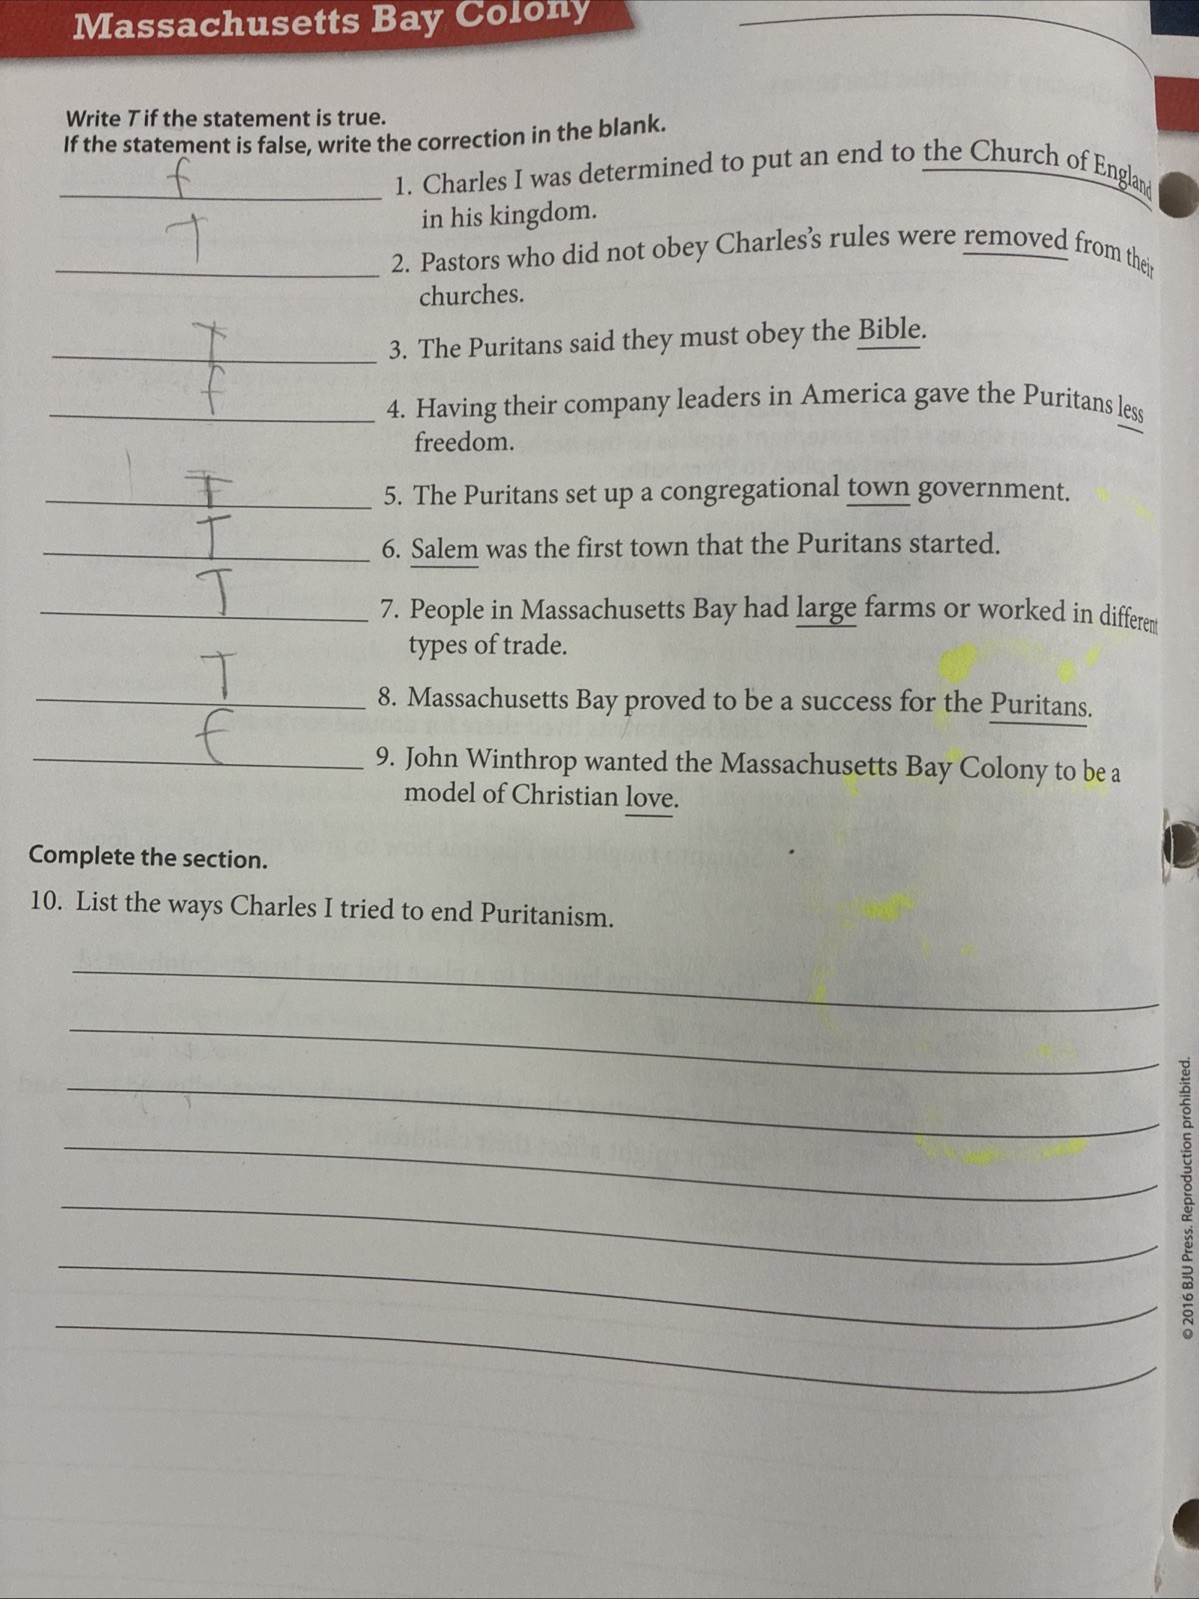 Massachusetts Bay Colony
Write T if the statement is true.
If the statement is false, write the correction in the blank.
f 1. Charles I was determined to put an end to the Church of England
in his kingdom.
T 2. Pastors who did not obey Charles's rules were removed from their
churches.
T 3. The Puritans said they must obey the Bible.
f 4. Having their company leaders in America gave the Puritans less
freedom.
T 5. The Puritans set up a congregational town government.
T 6. Salem was the first town that the Puritans started.
T 7. People in Massachusetts Bay had large farms or worked in different
types of trade.
T 8. Massachusetts Bay proved to be a success for the Puritans.
f 9. John Winthrop wanted the Massachusetts Bay Colony to be a
model of Christian love.
Complete the section.
10. List the ways Charles I tried to end Puritanism.
© 2016 BJU Press. Reproduction prohibited.